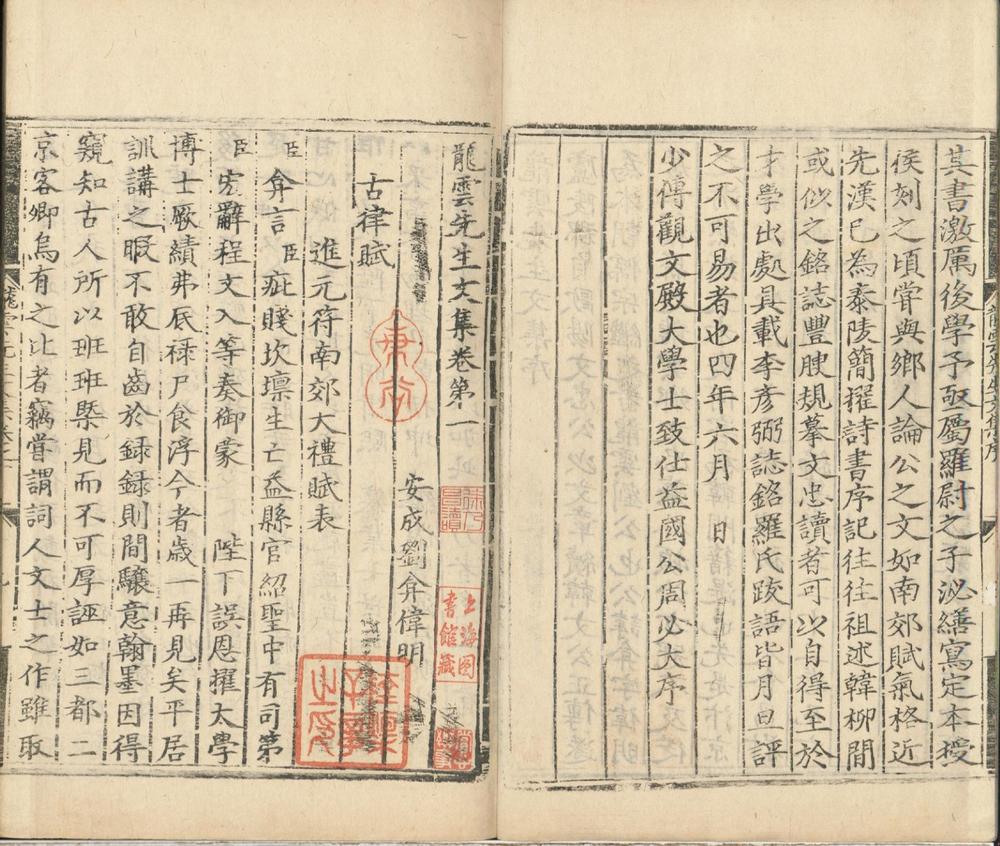 其書激厲後學予亟屬羅尉之子泌繕寫定本授
侯刻之頃嘗與鄉人論公之文如南郊賦氣格近
先漢已為泰陵簡擢詩書序記往往祖述韓柳間
或似之銘誌豐腴規摹文忠讀者可以自得至於
才學出處具載李彥弼誌銘羅氏跋語皆月旦評
之不可易者也四年六月　日
少傅觀文殿大學士致仕益國公周必大序
龍雲先生文集卷第一
安成劉弇偉明
古律賦
進元符南郊大禮賦表
臣弇言臣疵賤坎壈生亡益縣官紹聖中有司第
臣宏辭程文入等奏御蒙　陛下誤恩擢太學
博士厥績弗底祿尸食浮今者歲一再見矣平居
訓講之暇不敢自齒於録録則間驤意翰墨因得
窺知古人所以班班槩見而不可厚誣如三都二
京客卿烏有之比者竊嘗謂詞人文士之作雖取
上海图
書館藏